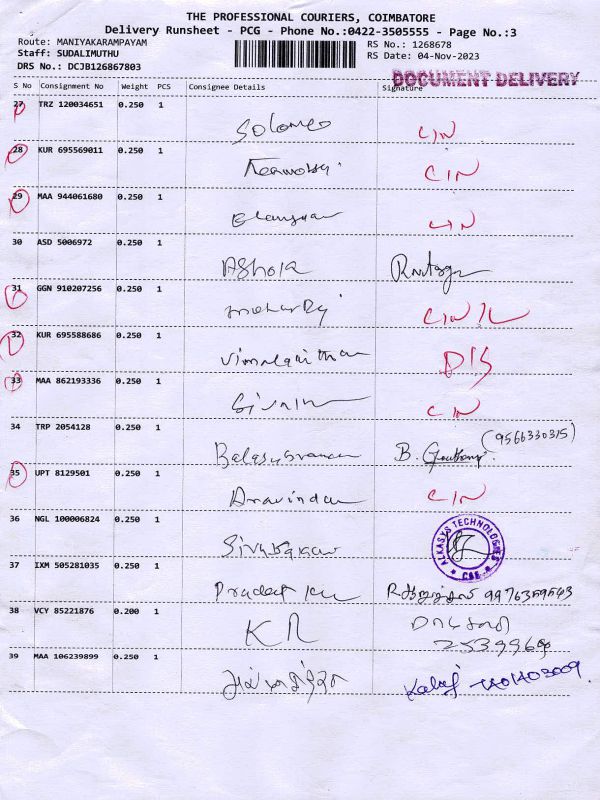 THE PROFESSIONAL COURIERS, COIMBATORE
Delivery Runsheet - PCG - Phone No.:0422-3505555 - Page No.:3
Route: MANIYAKARAMPAYAM RS No.: 1268678
Staff: SUDALIMUTHU RS Date: 04-Nov-2023
DRS No.: DCJB126867803 DOCUMENT DELIVERY
S No Consignment No Weight PCS Consignee Details Signature
27 TRZ 120034651 0.250 1
Solomeo CIN
28 KUR 695569011 0.250 1
CIN
29 MAA 944061680 0.250 1
CIN
30 ASD 5006972 0.250 1
Ashok
31 GGN 910207256 0.250 1
mohanRaj
32 KUR 695588686 0.250 1
D/S
33 MAA 862193336 0.250 1
CIN
34 TRP 2054128 0.250 1
Balasubraman B. Goutham (9566330315)
35 UPT 8129501 0.250 1
Aravindan CIN
36 NGL 100006824 0.250 1
ALKASYS TECHNOLOGIES
CBE
37 IXM 505281035 0.250 1
Pradeep
38 VCY 85221876 0.200 1
KR
39 MAA 106239899 0.250 1